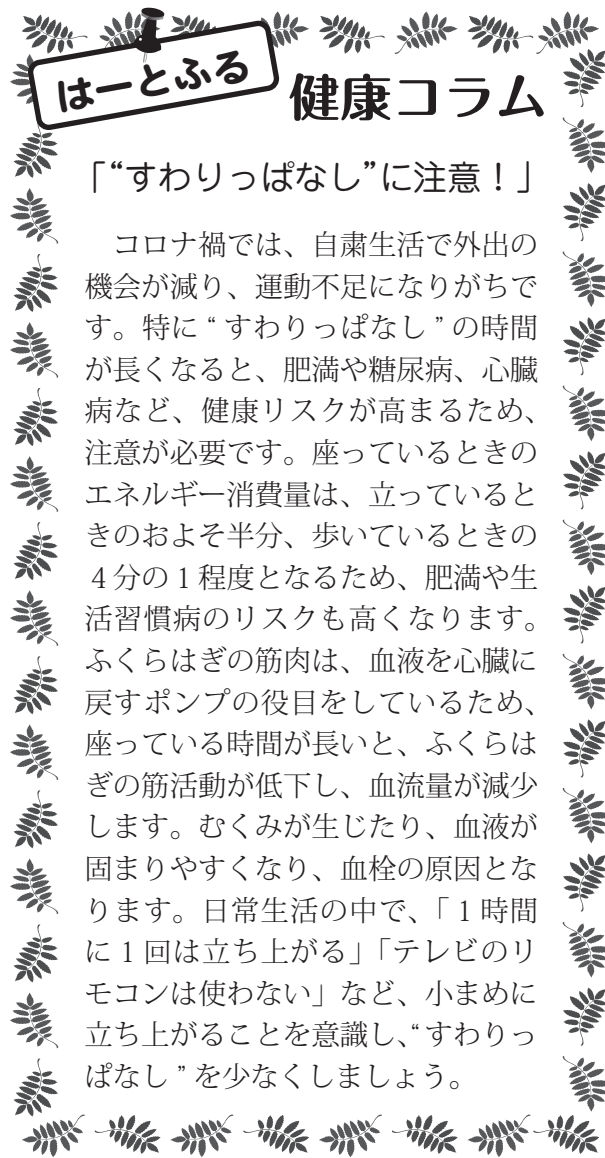 はーとふる
健康コラム
「“すわりっぱなし”に注意！」
　コロナ禍では、自粛生活で外出の
機会が減り、運動不足になりがちで
す。特に “ すわりっぱなし ” の時間
が長くなると、肥満や糖尿病、心臓
病など、健康リスクが高まるため、
注意が必要です。座っているときの
エネルギー消費量は、立っていると
きのおよそ半分、歩いているときの
４分の１程度となるため、肥満や生
活習慣病のリスクも高くなります。
ふくらはぎの筋肉は、血液を心臓に
戻すポンプの役目をしているため、
座っている時間が長いと、ふくらは
ぎの筋活動が低下し、血流量が減少
します。むくみが生じたり、血液が
固まりやすくなり、血栓の原因とな
ります。日常生活の中で、「１時間
に１回は立ち上がる」「テレビのリ
モコンは使わない」など、小まめに
立ち上がることを意識し、“ すわりっ
ぱなし ” を少なくしましょう。